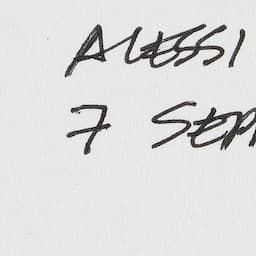 ALESSI
7 SEP